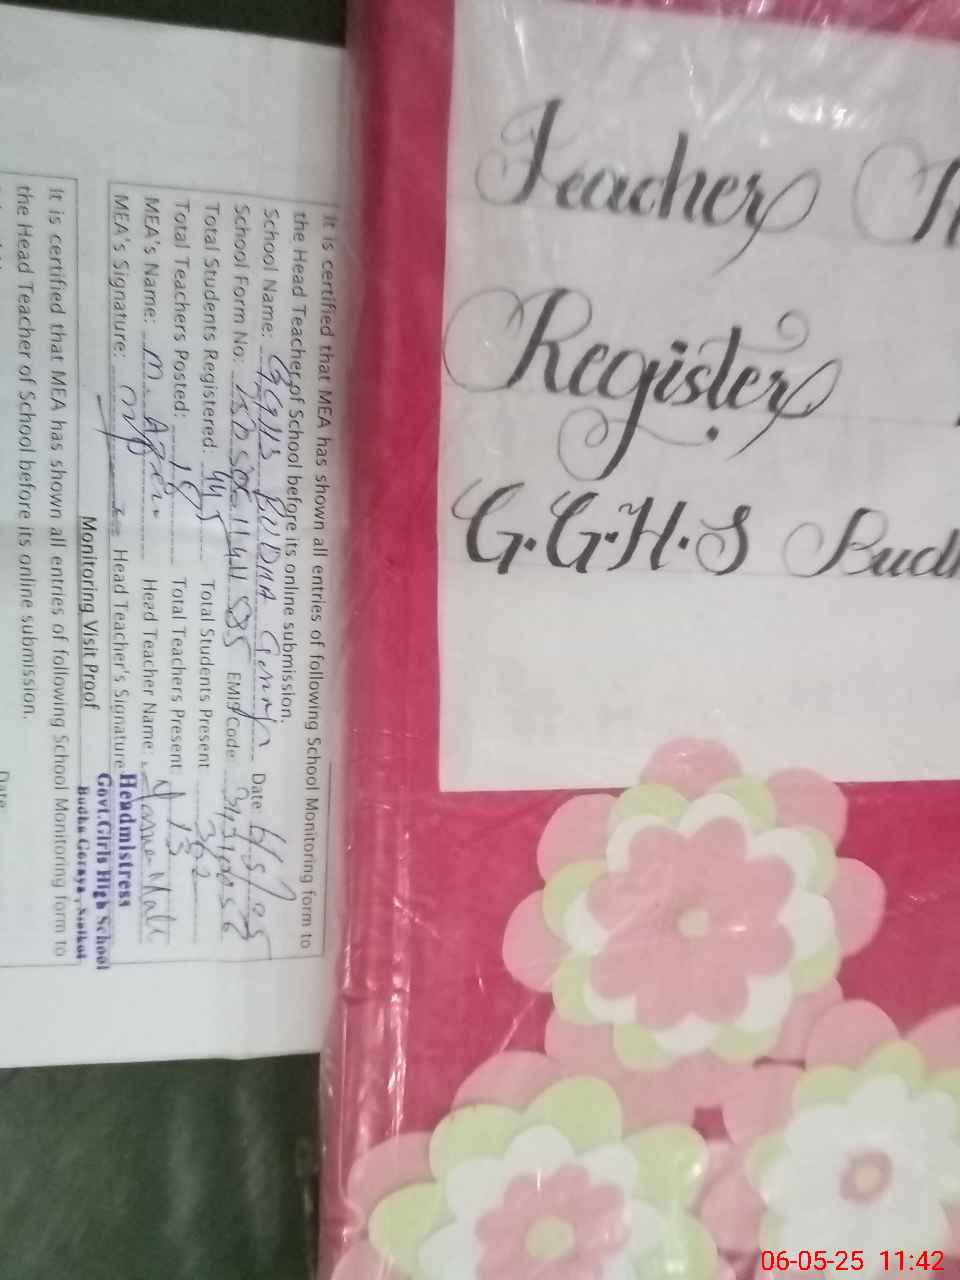 It is certified that MEA has shown all entries of following School Monitoring form to
the Head Teacher of School before its online submission.
School Name: GGHS BUDHA Date: 6/5/25
School Form No: EMIS Code:
Total Students Registered: 445 Total Students Present: 302
Total Teachers Posted: 18 Total Teachers Present: 13
MEA's Name: Head Teacher Name:
MEA's Signature: Head Teacher's Signature
Headmistress
Govt.Girls High School
Budha Goraya, Sialkot
Monitoring Visit Proof
It is certified that MEA has shown all entries of following School Monitoring form to
the Head Teacher of School before its online submission.
Date:
Teacher
Register
G.G.H.S Budh
06-05-25 11:42